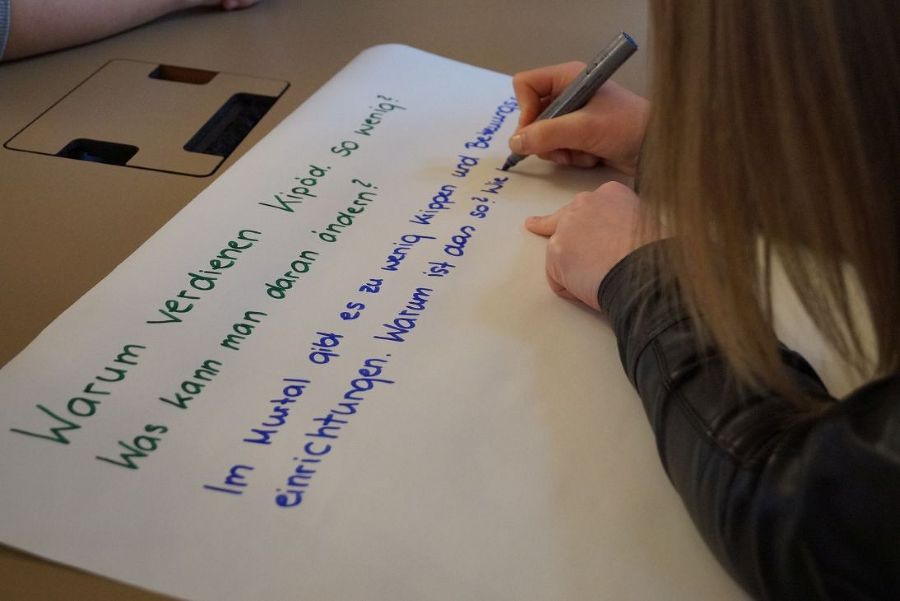 Warum verdienen Kipäd. so wenig?
Was kann man daran ändern?
Im Murtal gibt es zu wenig Krippen und Betreuungs-
einrichtungen. Warum ist das so? Wie